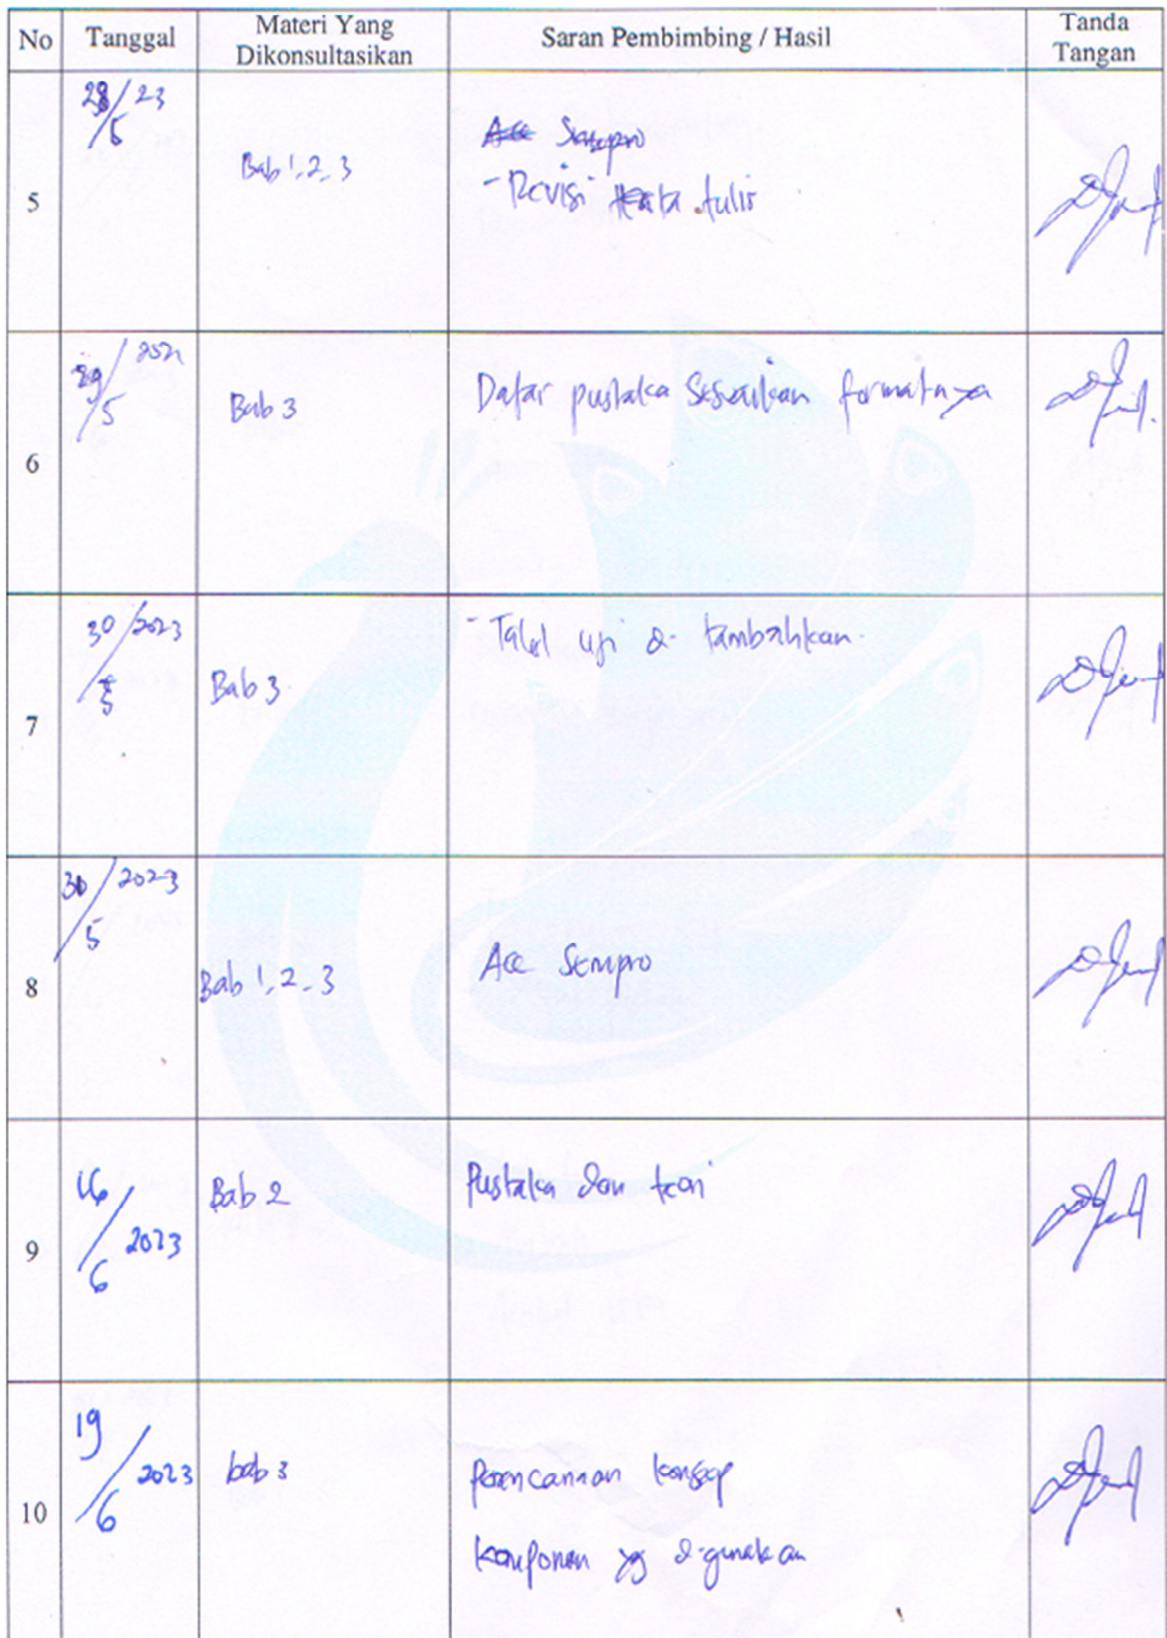 No Tanggal Materi Yang Dikonsultasikan Saran Pembimbing / Hasil Tanda Tangan
5 28/5 23 Bab 1, 2, 3 Acc Sempro
- Revisi tata tulis
6 29/5 Bab 3 Dafar pustaka Sesuaikan formatnya
7 30/5 2023 Bab 3. - Tabel uji di tambahkan.
8 30/5 2023 Bab 1, 2, 3 Acc Sempro
9 16/6 2023 Bab 2 Pustaka dan teori
10 19/6 2023 bab 3 Perencanaan konsep
komponen yg di gunakan